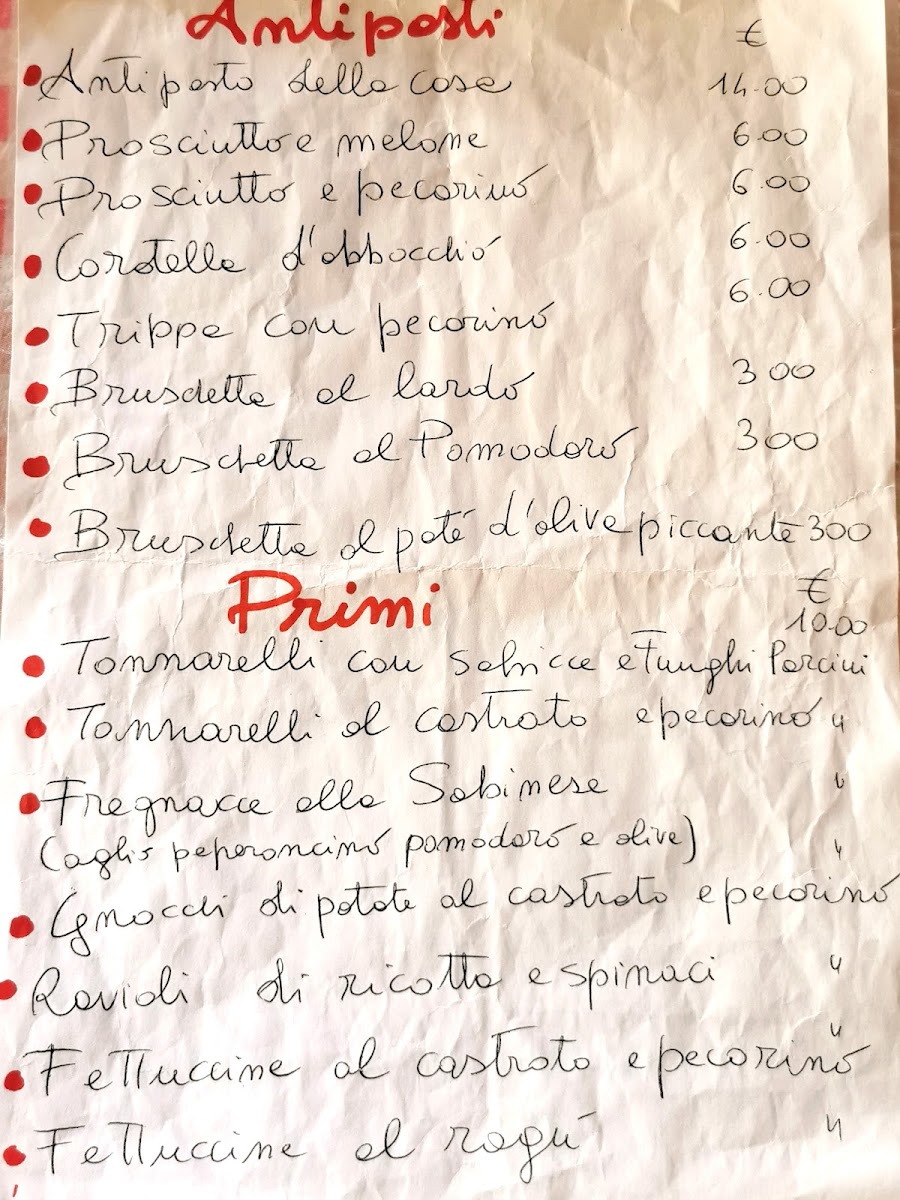 Antipasti €
Antipasto della casa 14.00
Prosciutto e melone 6.00
Prosciutto e pecorino 6.00
Coratella d'abbacchio 6.00
Trippa con pecorino 6.00
Bruschetta al lardo 3 00
Bruschetta al Pomodoro 300
Bruschetta al paté d'olive piccante 300
Primi €
10.00
Tonnarelli con salsicce e Funghi Porcini
Tonnarelli al castrato e pecorino "
Fregnacce alla Sabinese "
(aglio peperoncino pomodoro e olive) "
Gnocchi di patate al castrato e pecorino
Ravioli di ricotta e spinaci "
Fettuccine al castrato e pecorino "
Fettuccine al ragù "